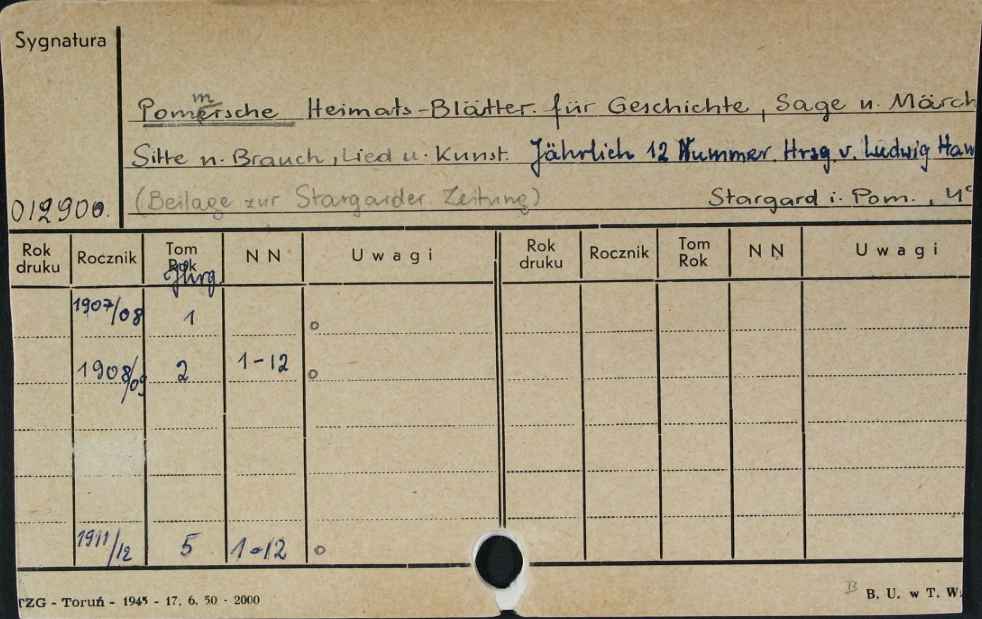 Sygnatura
m
Pomersche Heimats-Blätter. für Geschichte, Sage u. Märch
Sitte u. Brauch, Lied u. Kunst. Jährlich 12 Nummer. Hrsg. v. Ludwig Ham
012900. (Beilage zur Stargarder Zeitung) Stargard i. Pom., 4°
Rok druku Rocznik Tom Rok Jhrg. N N Uwagi Rok druku Rocznik Tom Rok N N Uwagi
1907/08 1 o
1908/09 2 1-12 o
1911/12 5 1-12 o
TZG - Toruń - 1945 - 17. 6. 50 - 2000 B B. U. w T. W.